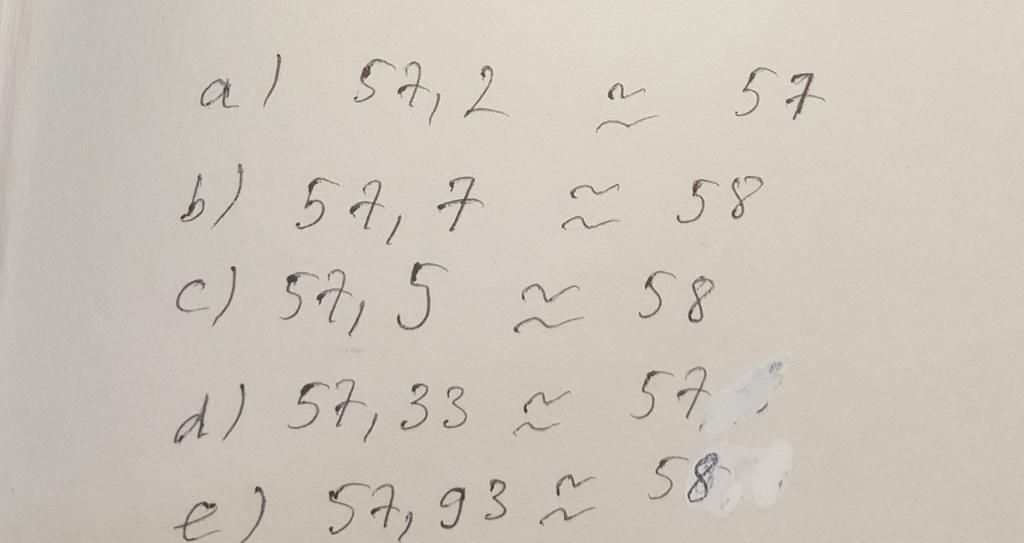 a) 57,2 ≈ 57
b) 57,7 ≈ 58
c) 57,5 ≈ 58
d) 57,33 ≈ 57
e) 57,93 ≈ 58